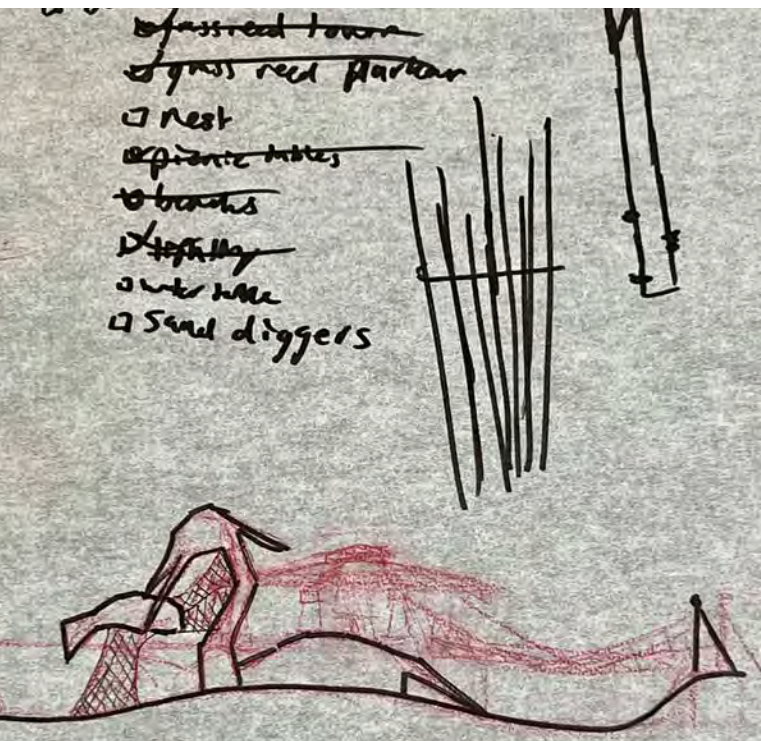 grass reed tower
grass reed parkour
nest
picnic tables
benches
water table
Sand diggers